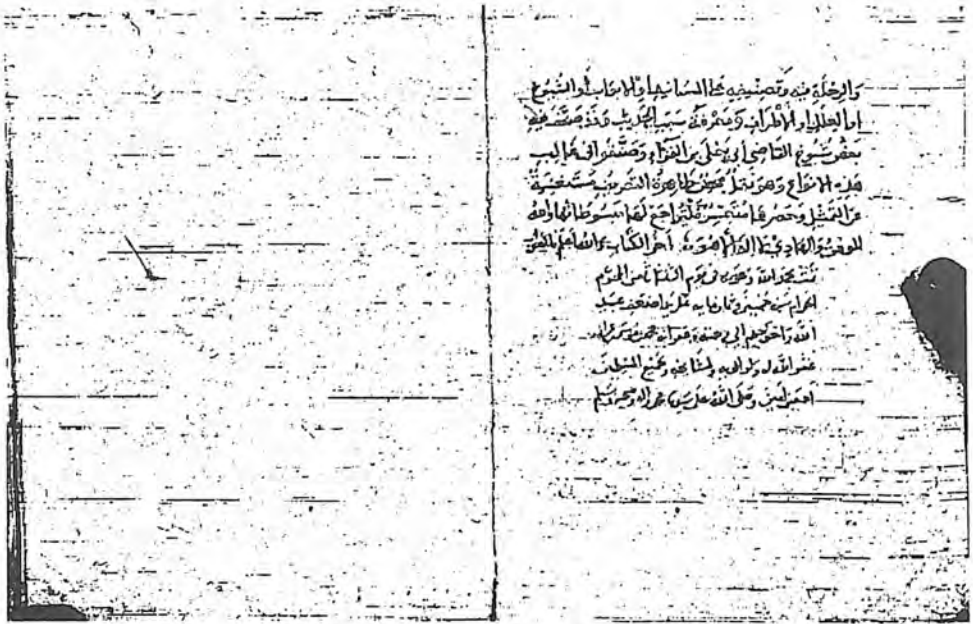 والرحلة فيه وتصنيفه على المسانيد أو الأبواب أو الشيوخ
أو العلل أو الأطراف ومعرفة سبب الحديث وقد صنف فيه
بعض شيوخ القاضي أبي يعلى بن الفراء وصنفوا في غالب
هذه الأنواع وهي نقل محض ظاهرة التعريف مستغنية
عن التمثيل وحصرها متعسر فليراجع لها مبسوطاتها والله
الموفق والهادي لا إله إلا هو آخر الكتاب والله أعلم
تمت بحمد الله وعونه في يوم الثلاثا ثامن المحرم
الحرام سنة
الله وأحوجهم إلى رحمته
غفر الله له ولوالديه ولمشايخه ولجميع المسلمين
أجمعين آمين وصلى الله على سيدنا محمد وآله وصحبه وسلم